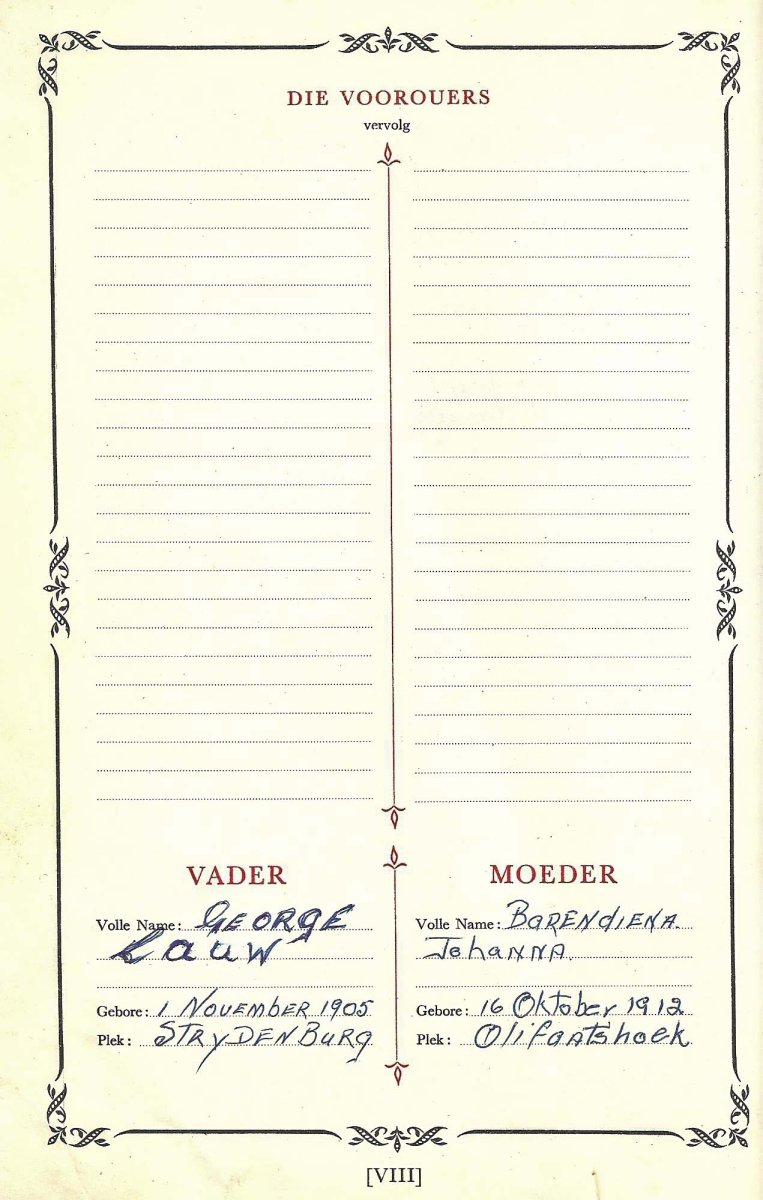 DIE VOOROUERS
vervolg
VADER
Volle Name: GEORGE
LAUW
Gebore: 1 NOVEMBER 1905
Plek: STRYDENBURG
MOEDER
Volle Name: BARENDIENA
JOHANNA.
Gebore: 16 Oktober 1912
Plek: Olifaatshoek
[VIII]